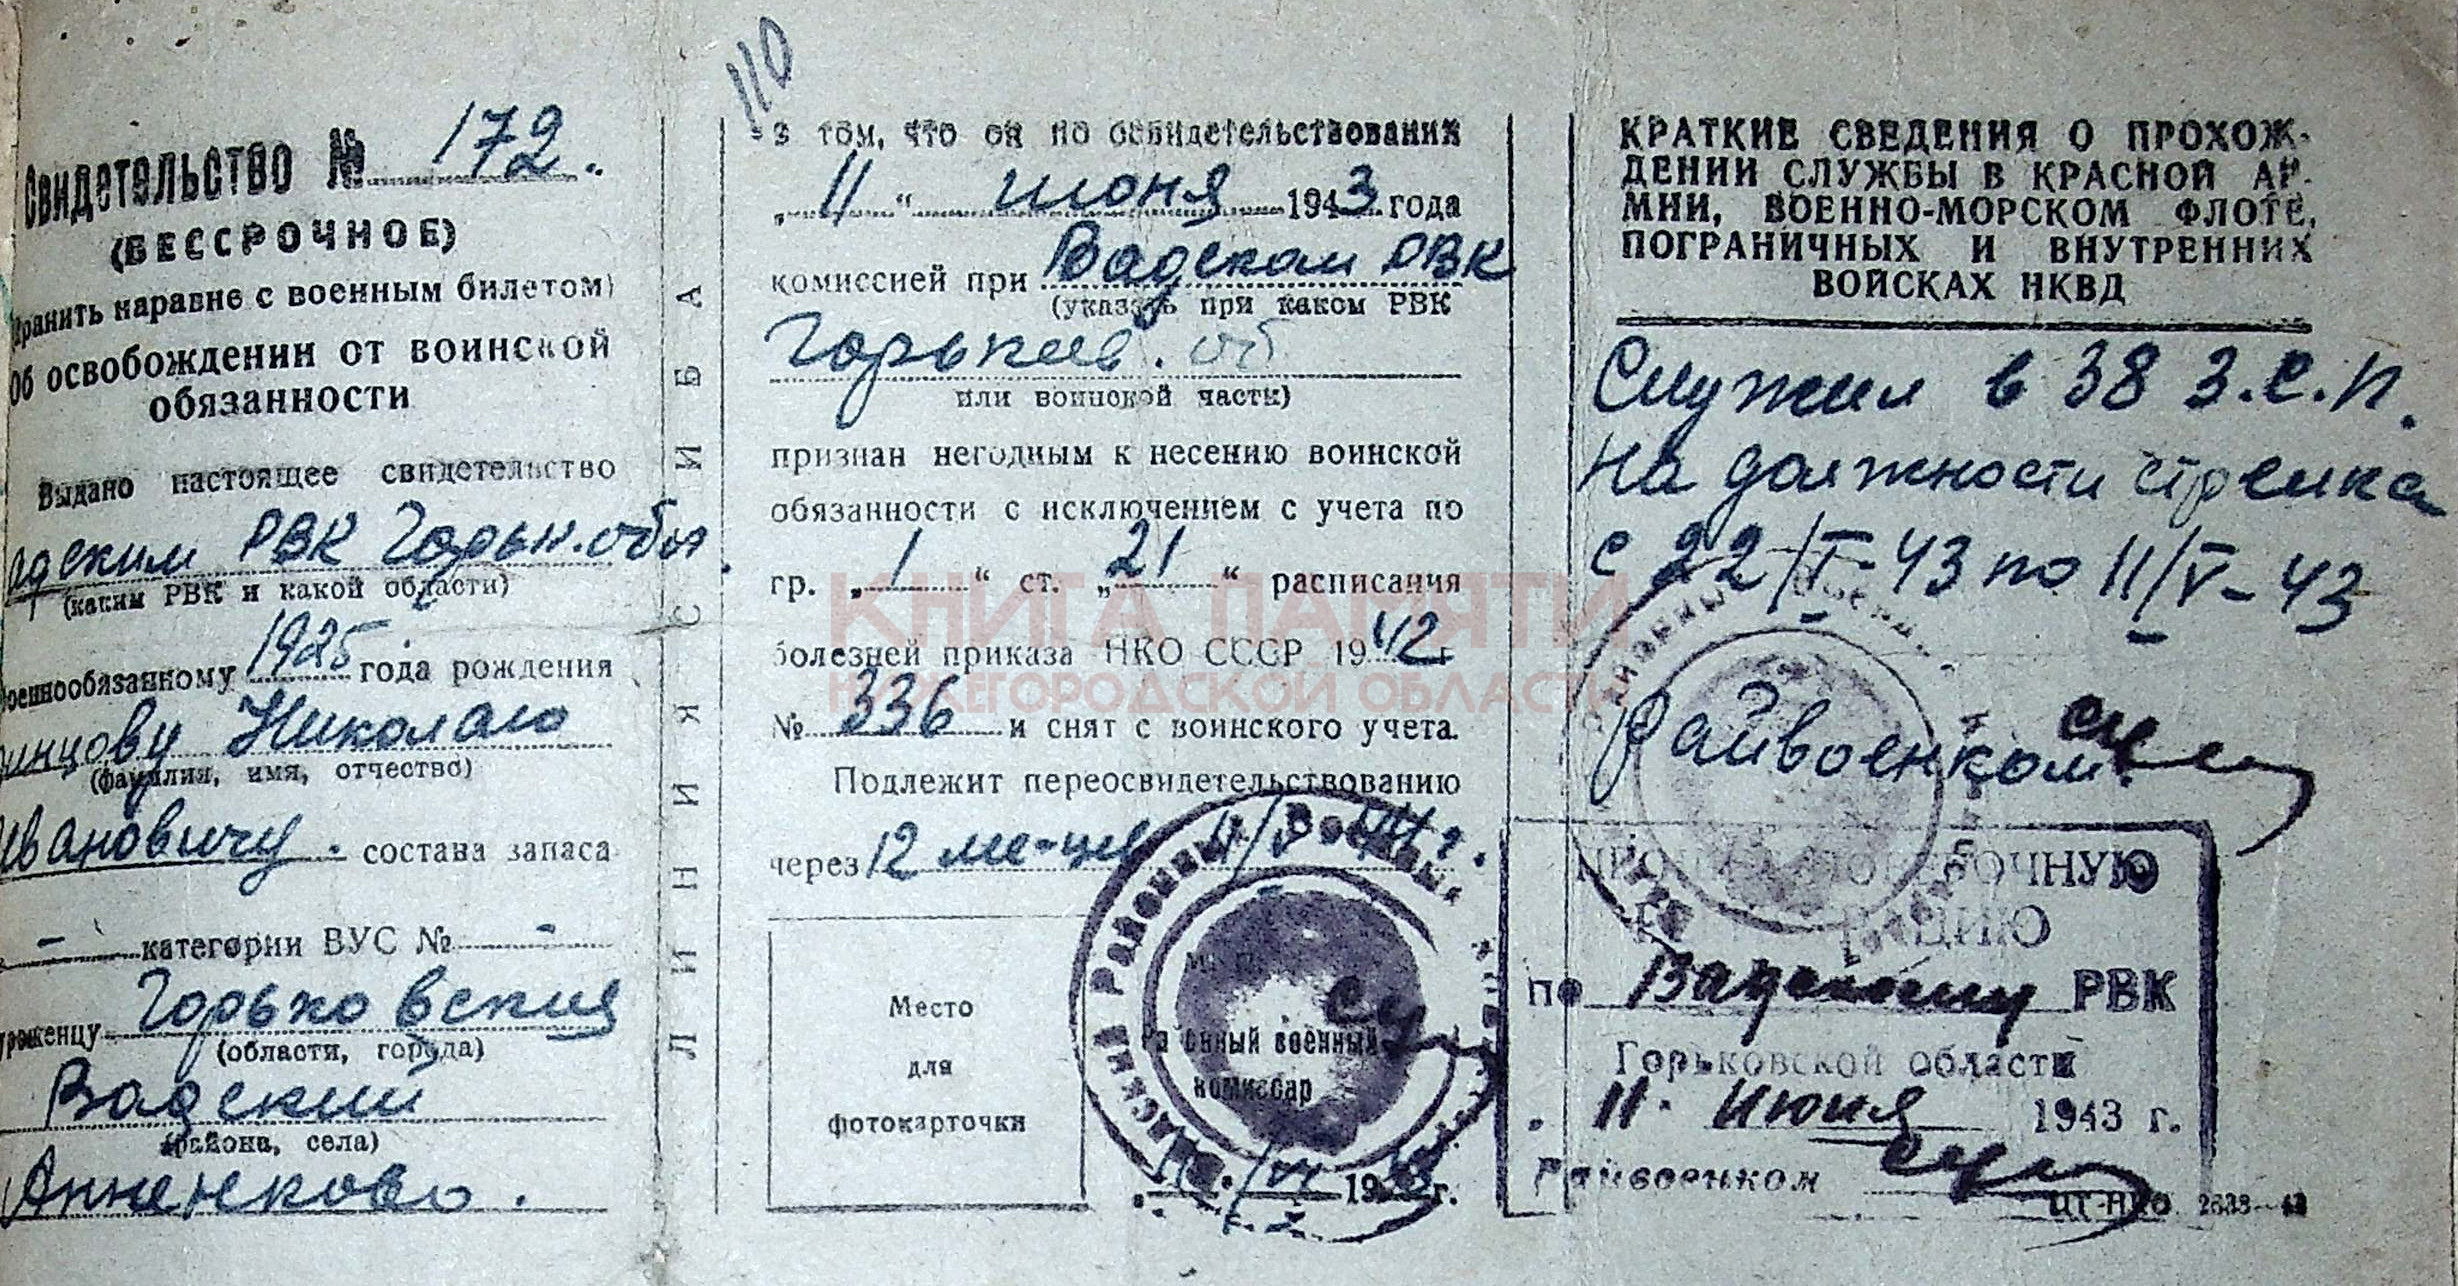 110
Свидетельство № 172.
(БЕССРОЧНОЕ)
хранить наравне с военным билетом)
Об освобождении от воинской
обязанности
Выдано настоящее свидетельство
адским РВК Горьк. обл.
(каким РВК и какой области)
военнообязанному 1925 года рождения
инцову Николаю
(фамилия, имя, отчество)
Ивановичу. состава запаса
- категории ВУС № -
уроженцу Горьковския
(области, города)
Вадский
(района, села)
Анненково.
ЛИНИЯ СГИБА
в том, что он по освидетельствовании
„11“ июня 1943 года
комиссией при Вадском РВК
(указать при каком РВК
Горьков. об
или воинской части)
признан негодным к несению воинской
обязанности с исключением с учета по
гр. „1“ ст. „21“ расписания
болезней приказа НКО СССР 1942 г
№ 336 и снят с воинского учета.
Подлежит переосвидетельствованию
через 12 ме-цев 11/V-44 г.
Место
для
фотокарточки
Районный военный
комиссар
11/VI 1943 г.
КРАТКИЕ СВЕДЕНИЯ О ПРОХОЖ-
ДЕНИИ СЛУЖБЫ В КРАСНОЙ АР-
МИИ, ВОЕННО-МОРСКОМ ФЛОТЕ,
ПОГРАНИЧНЫХ И ВНУТРЕННИХ
ВОЙСКАХ НКВД
Служил в 38 З.С.П.
на должности стрелка
с 22/I-43 по 11/V-43
Райвоенком
ПЕРЕРЕГИСТРАЦИЮ
по Вадскому РВК
Горьковской области
11. Июня 1943 г.
Райвоенком
ЦТ-НКО 2638-43
КНИГА ПАМЯТИ
НИЖЕГОРОДСКОЙ ОБЛАСТИ